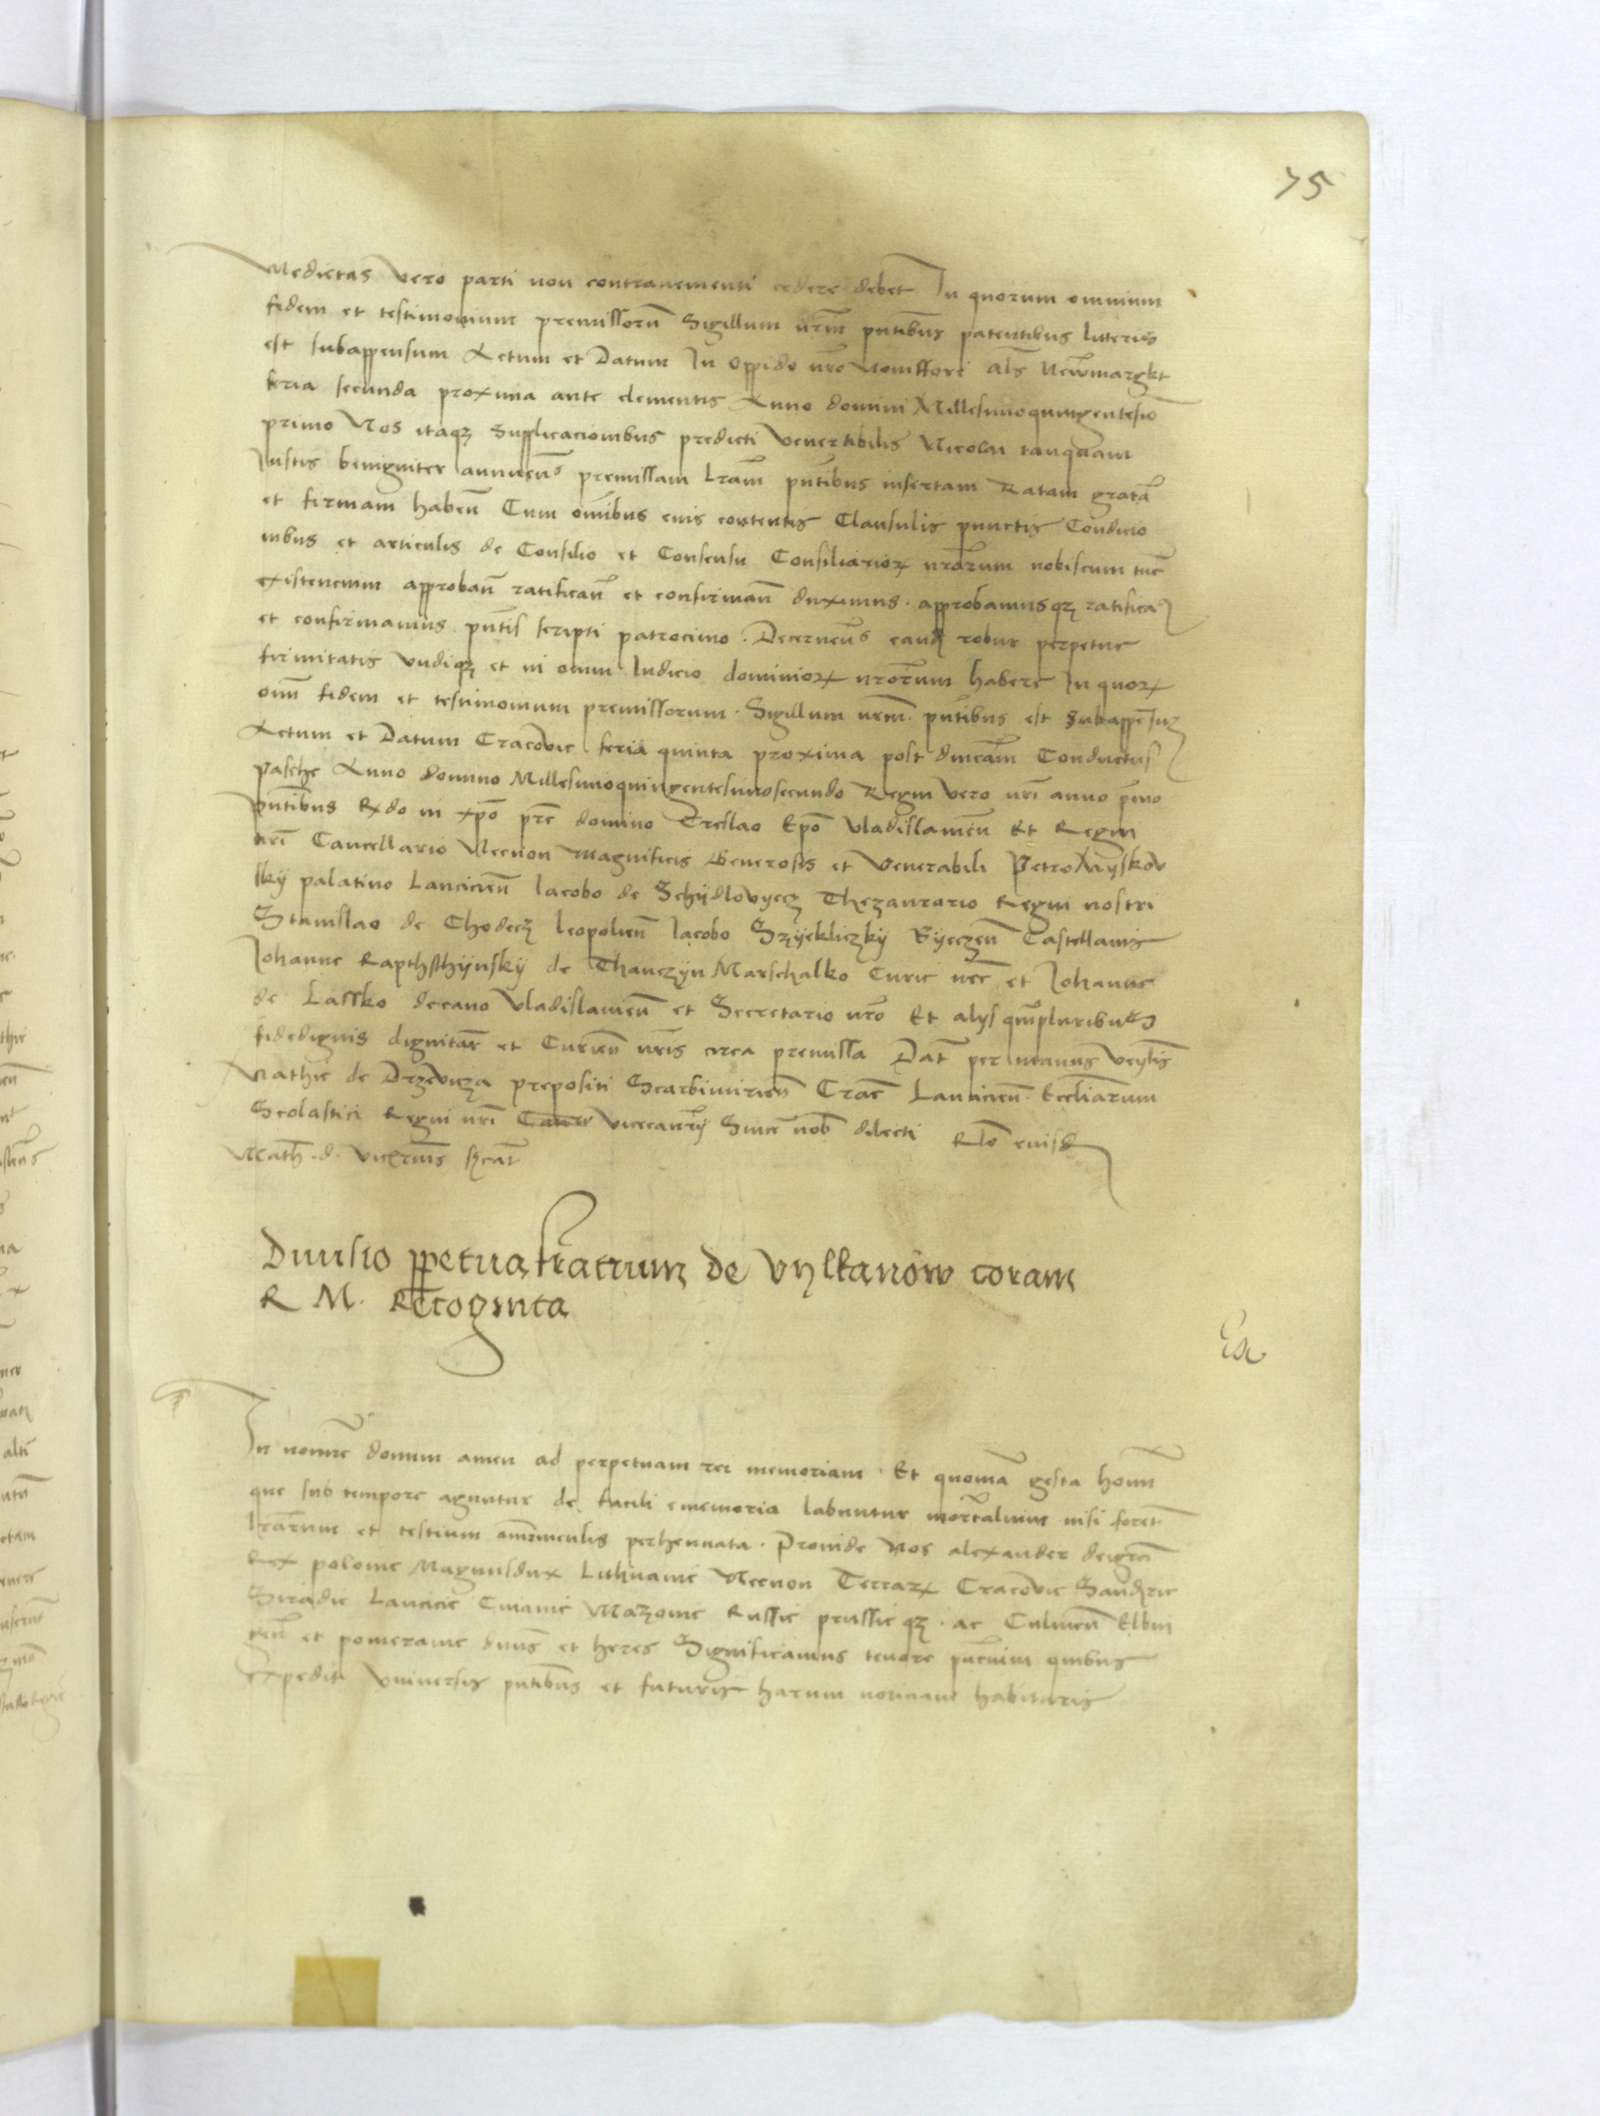 75
Medietas vero parti non contravenienti cedere debet In quorum omnium
fidem et testimonium premissorum Sigillum nrm pntibus patentibus litteris
est subappensum Actum et Datum In Oppido nro Noviffori als Newmargkt
feria secunda proxima ante clementis Anno domini Millesimoquingentesio
primo Nos itaqz Supplicacionibus predicti Venerabilis Nicolai tanquam
Iustis benigniter annuens premissam lram pntibus insertam Ratam gratam
et firmam haben Cum omibus eius contentis Clausulis punctis Condicio
nibus et articulis de Consilio et Consensu Consiliarior nrorum nobiscum tuc
existencium approban ratifican et confirman duximus . approbamusqz ratifica
et confirmamus pntis scripti patrocinio . Decernens eand robur perpetue
firmitatis undiqz et in omni Iudicio dominior nrorum habere In quor
oim fidem et testimonium premissorum . Sigillum nrm pntibus est subappesuz
Actum et Datum Cracovie feria quinta proxima post dnicam Conductus
pasche Anno domino Millesimoquingentesimosecundo Regni vero nri anno pmo
pntibus Rdo in xpo pre domino Creslao Epo Vladislavien Et Regni
nri Cancellario Necnon magnificis Generosis et Venerabili Petro Myskow
sky palatino Lancicien Iacobo de Schydlovyecz Thezaurario Regni nostri
Stanislao de Chodecz leopolien Iacobo Syekliczky Vyeczen Castellanis
Johanne Rapthsthynsky de Thanczyn Marschalko Curie nre et Johanne
de Lassko decano Vladislavien et Secretario nro Et alys qmpluribus
fidedignis dignitar et Curien nris circa premissa Dat per manus Veylis
Mathie de Drzewicza prepositi Scarbimirien Crac Lancicien Eccliarum
Scolastici Regni nri Vicecanry Sincer nob dilecti Rlo eiusd
Math . d .
Divisio ppetua fratrum de Vylkanow coram
R M . Recognita
In nomine domini amen ad perpetuam rei memoriam . Et quoniam gesta homi
que sub tempore aguntur de facili e memoria labuntur mortalium nisi foret
lrarum et testium amminculis perhennata . Proinde Nos alexander dei gra
Rex polonie Magnusdux Lithuanie Necnon Terrar Cracovie Sandrie
Siradie Lancicie Cuiavie Mazovie Russie prussie qz . ac Culmen Elbin
cen et pomeranie dnus et heres Significamus tenore pncium quibus
expedit Universis pntibus et futuris harum noticiam habituris